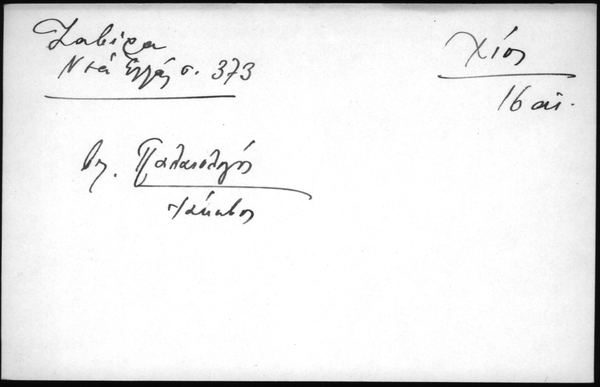 Ζαβίρα
Νέα Ἑλλάς σ. 373
Χίος
16 αἰ.
βλ. Παλαιολόγος
Ἰάκωβος